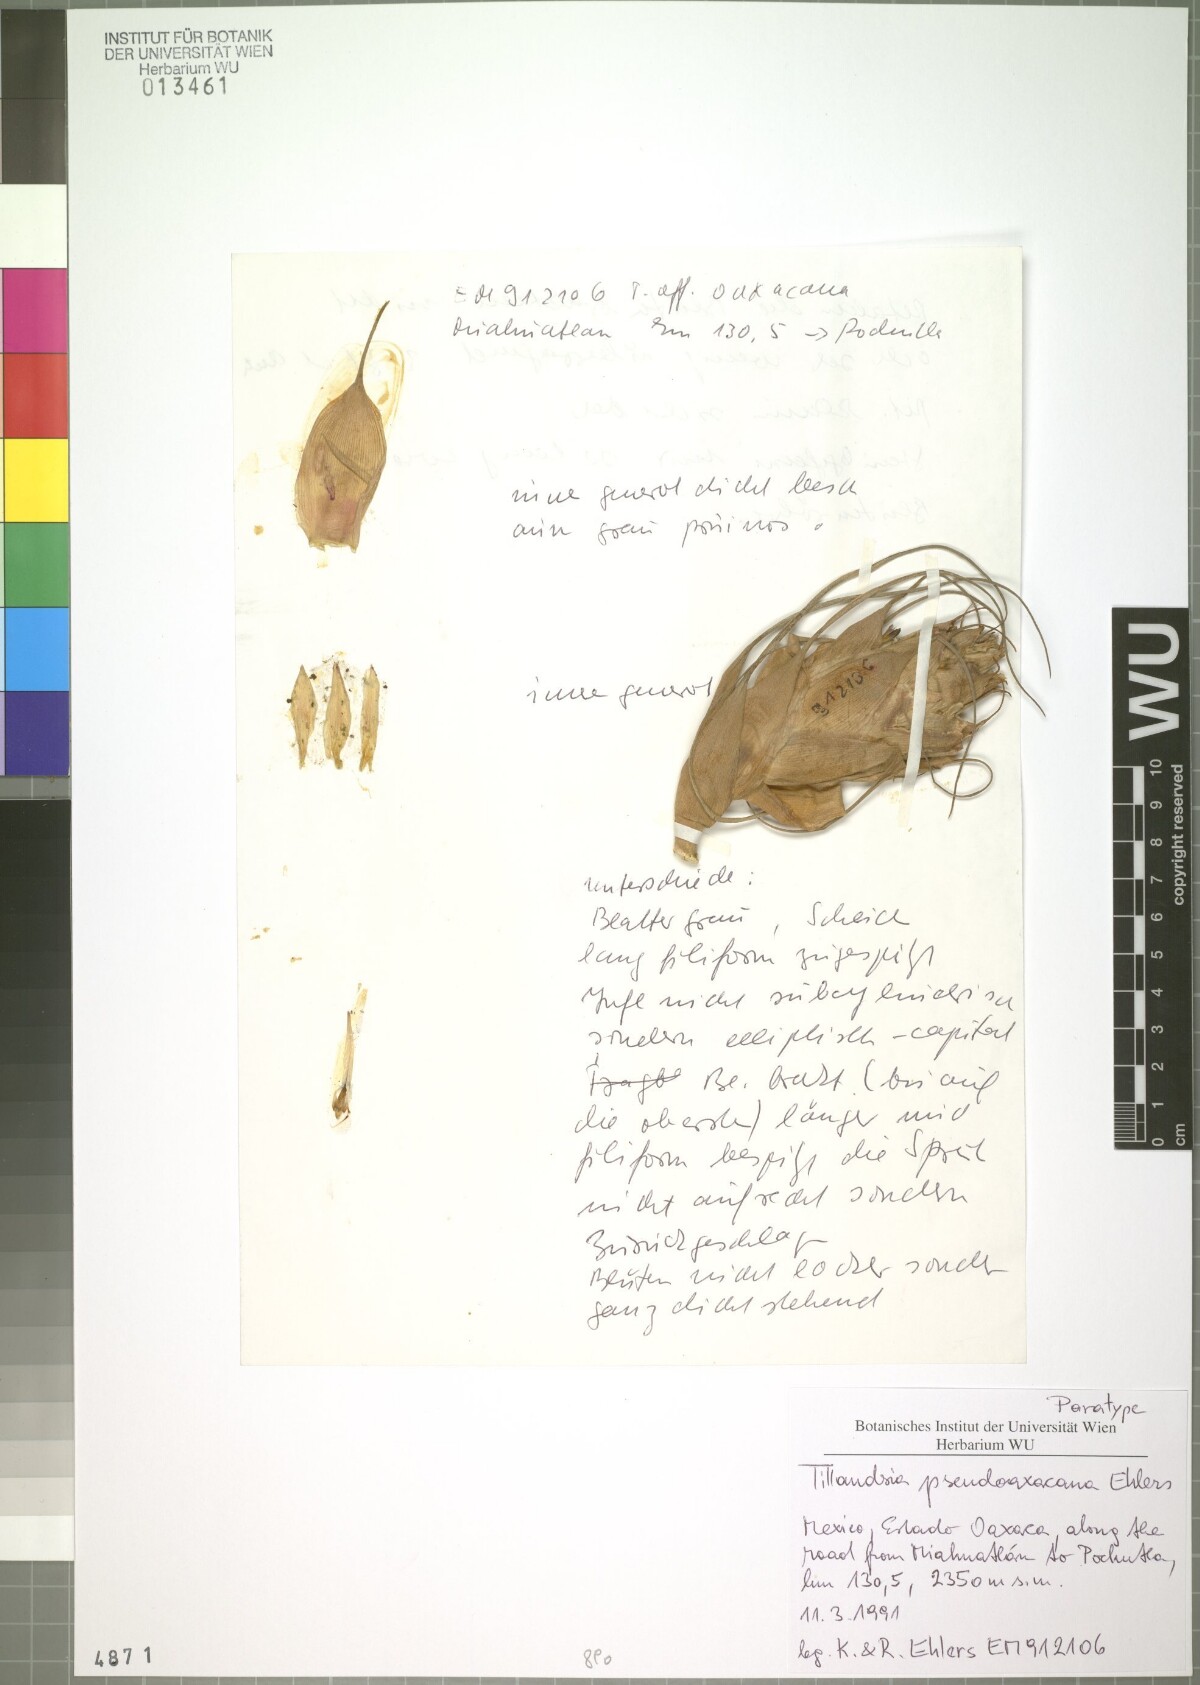 INSTITUT FÜR BOTANIK
DER UNIVERSITÄT WIEN
Herbarium WU
013461
EM 912106 T. aff. oaxacana
Miahuatlan km 130,5 -> Pochutla
dicht besch
grau pruinos.
912106
Unterschiede:
Blätter grau, Scheid
lang filiform zugespitzt
Infl nicht subcylindrisch
sondern elliptisch-capitat
Tragbl Br. brakt. (bis auf
die oberste) länger und
filiform bespitzt die Spreit
nicht aufrecht sondern
zurückgeschlag
Blüten nicht locker sondern
ganz dicht stehend
WU
0 1 2 3 4 5 6 7 8 9 10
cm
copyright reserved
Paratype
Botanisches Institut der Universität Wien
Herbarium WU
Tillandsia pseudooaxacana Ehlers
Mexico, Estado Oaxaca, along the
road from Miahuatlán to Pochutla,
km 130,5, 2350m s.m.
11.3.1991
leg. K. & R. Ehlers EM912106
4871